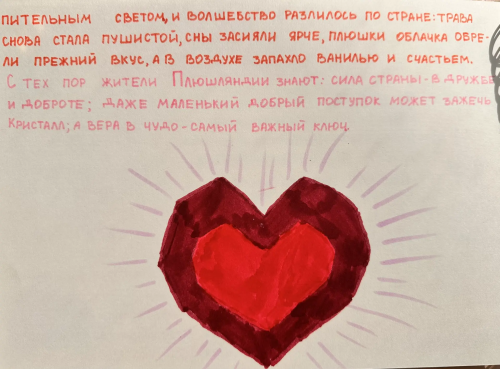 пительным светом, и волшебство разлилось по стране: трава
снова стала пушистой, сны засияли ярче, плюшки облачка обре-
ли прежний вкус, а в воздухе запахло ванилью и счастьем.
С тех пор жители Плюшляндии знают: сила страны - в дружбе
и доброте; даже маленький добрый поступок может зажечь
кристалл; а вера в чудо - самый важный ключ.